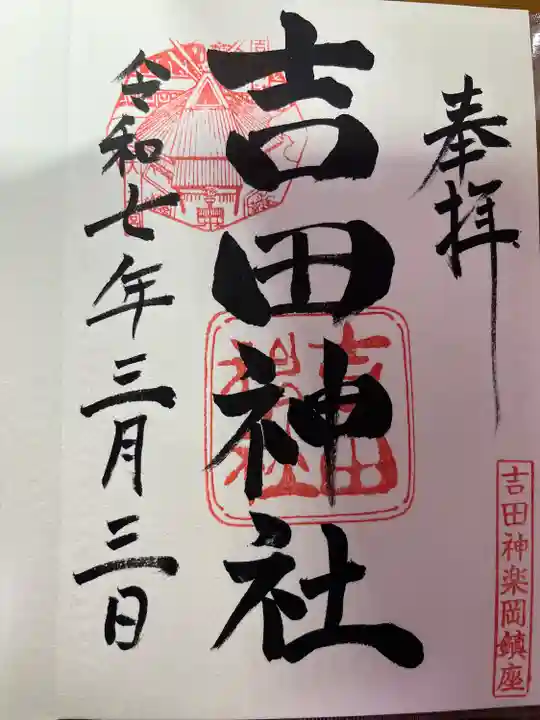 奉拝
吉田神楽岡鎮座
吉田神社
吉田神社
令和七年三月三日